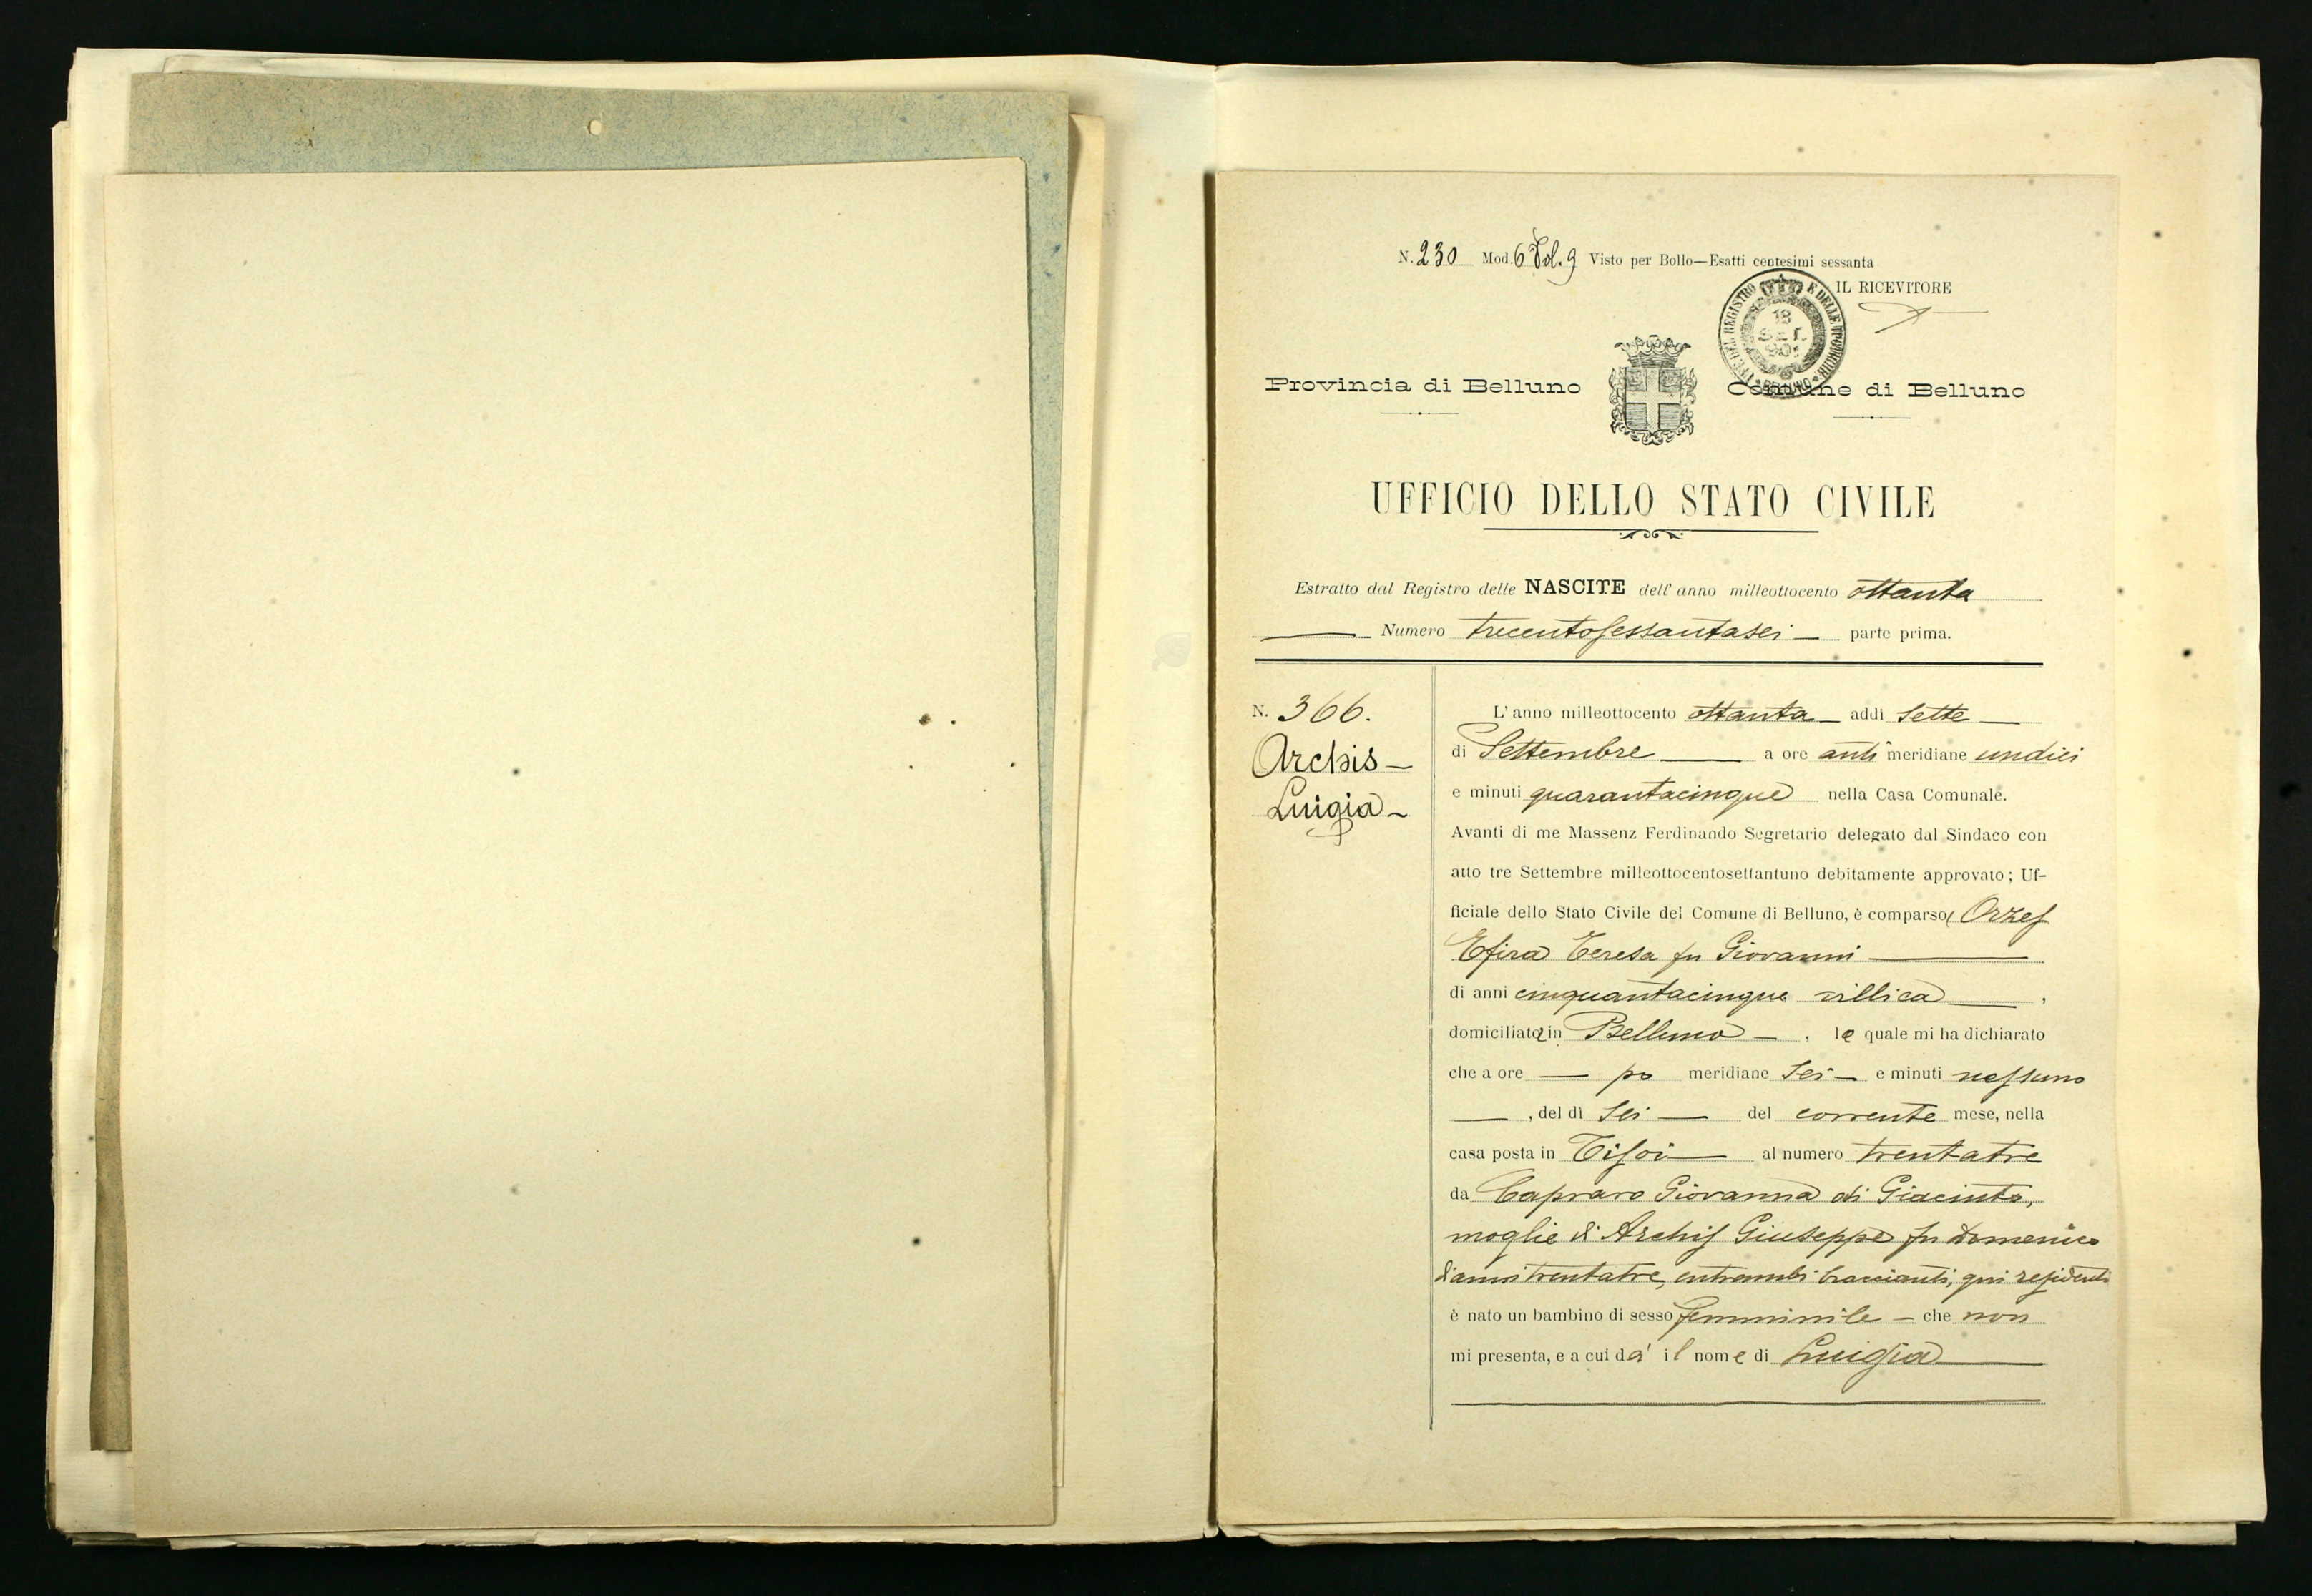 N. 230 Mod. 6 Vol. 9 Visto per Bollo—Esatti centesimi sessanta
IL RICEVITORE
18
SET.
Provincia di Belluno
Comune di Belluno
UFFICIO DELLO STATO CIVILE
Estratto dal Registro delle NASCITE dell' anno milleottocento ottanta
Numero trecentosessantasei parte prima.
N. 366.
Archis
Luigia
L' anno milleottocento ottanta addì sette
di Settembre a ore anti meridiane undici
e minuti quarantacinque nella Casa Comunale.
Avanti di me Massenz Ferdinando Segretario delegato dal Sindaco con
atto tre Settembre milleottocentosettantuno debitamente approvato; Uf-
ficiale dello Stato Civile del Comune di Belluno, è comparsa Orzes
Teresa fu Giovanni
di anni cinquantacinque villica,
domiciliata in Belluno, la quale mi ha dichiarato
che a ore po meridiane sei e minuti nessuno
, del dì sei del corrente mese, nella
casa posta in Tisoi al numero trentatre
da Capraro Giovanna di Giacinto,
moglie di Archis Giuseppe fu Domenico
d'anni trentatre, entrambi braccianti, qui residenti
è nato un bambino di sesso femminile – che non
mi presenta, e a cui dà il nome di Luigia